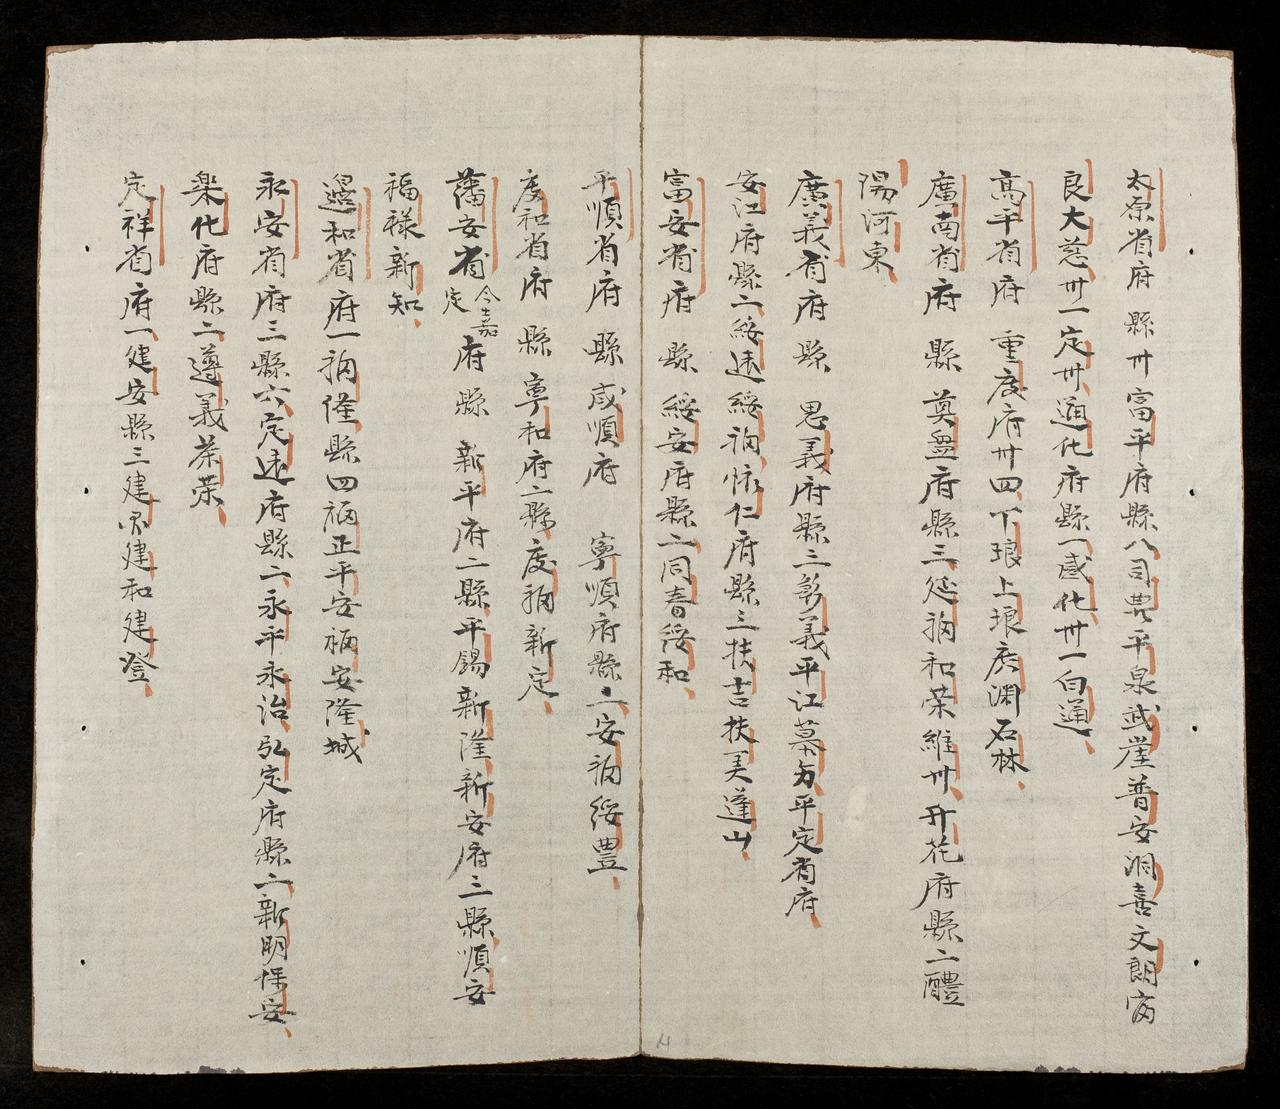 太原省府縣卅富平府縣八司農平泉武崖普安洞喜文朗富
良大慈卅一定卅通化府縣一感化卅一白通
高平省府 重慶府卅四下琅上琅廣淵石林
廣南省府 縣 奠盤府縣三延福和荣維卅升花府縣二醴
陽河東
廣義省府 縣 思義府縣三彰義平江慕每平定省府
安江府縣二綏遠綏福懷仁府縣三扶吉扶美蓬山
富安省府 縣 綏安府縣二同春綏和
平順省府 縣 咸順府 寧順府縣二安福綏豊
慶和省府 縣 寧和府二縣慶福新定
藩安省今嘉定府 縣 新平府二縣平錫新隆新安府三縣順安
福禄新知
邉和省府一福隆縣四福正平安福安隆城
永安省府三縣六定遠府縣二永平永治弘定府縣二新明保安
楽化府縣二遵義茶荣
定祥省府一建安縣三建昂建和建登